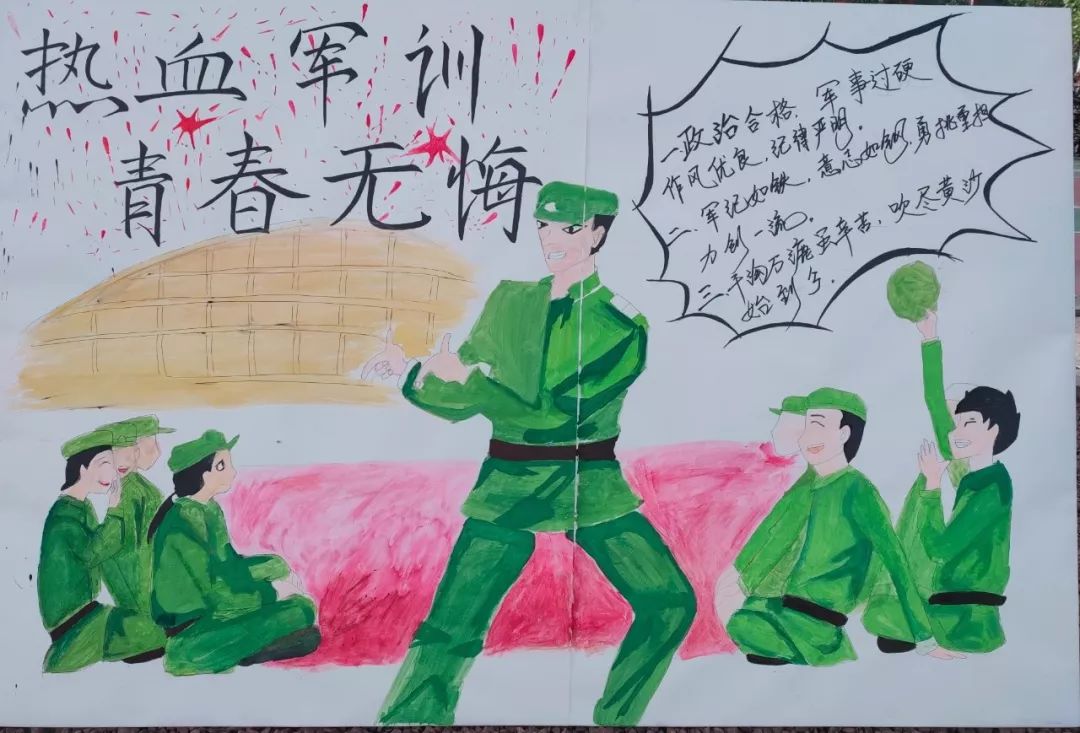 热血军训
青春无悔
一政治合格、军事过硬
作风优良，纪律严明.
二、军纪如铁，意志如钢，勇挑重担
力创一流。
三、千淘万漉虽辛苦，吹尽黄沙
始到